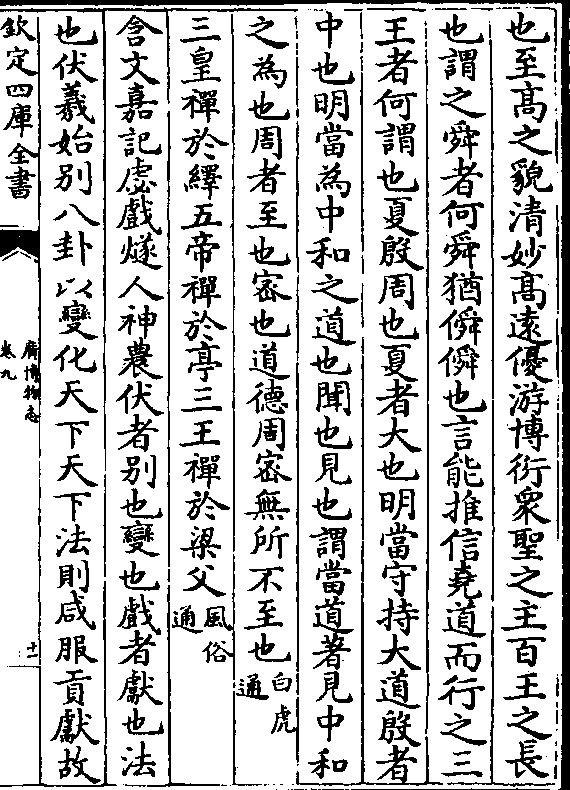 也至髙之貌清妙髙遠優游博衍衆聖之主百王之長
也謂之舜者何舜猶僢僢也言能推信堯道而行之三
王者何謂也夏殷周也夏者大也明當守持大道殷者
中也明當為中和之道也聞也見也謂當道著見中和
之為也周者至也宻也道德周宻無所不至也白虎通
三皇禪於繹五帝禪於亭三王禪於梁父風俗通
含文嘉記虙戲燧人神農伏者别也變也戲者獻也法
也伏羲始别八卦以變化天下天下法則咸服貢獻故
欽定四庫全書
廣博物志
卷九
十一